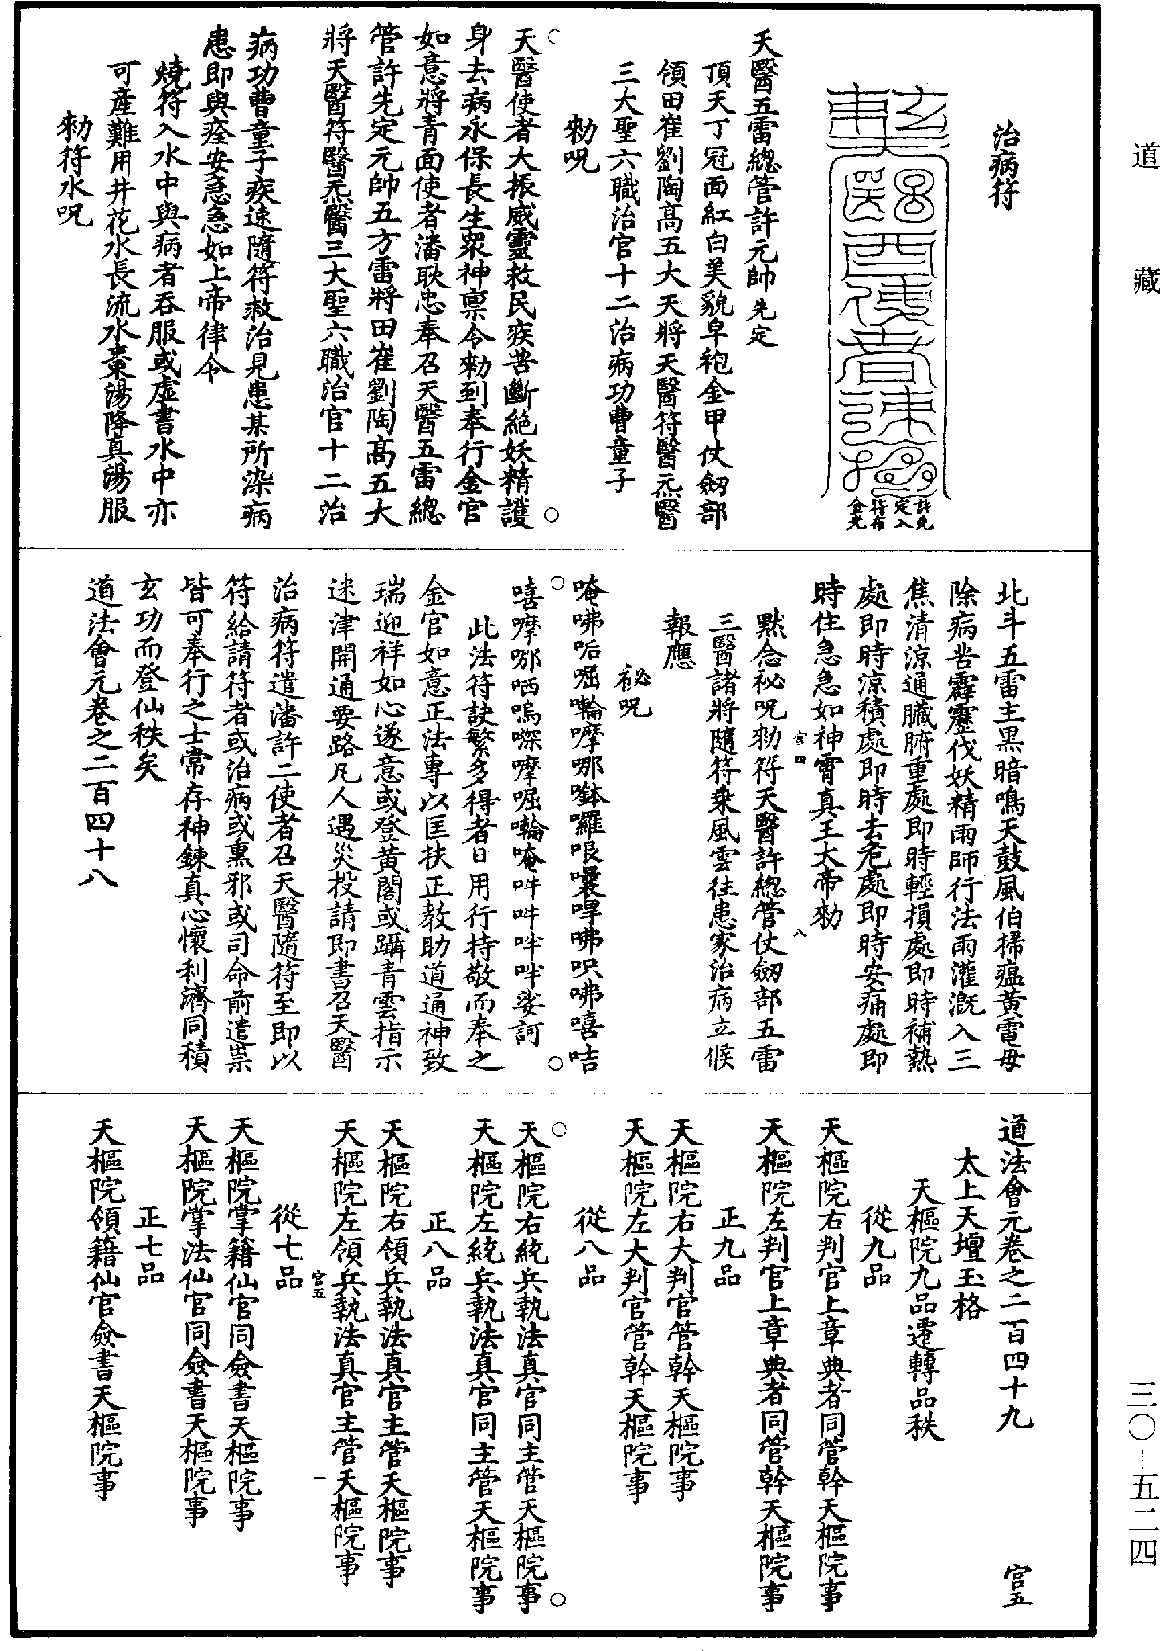 道藏
治病符
許先
定入
符布
金光
天醫五雷總管許元帥先定
頂天丁冠面紅白美貌皁袍金甲仗劒部
領田崔劉陶高五大天將天醫符醫炁醫
三大聖六職治官十二治病功曹童子
勑咒
天醫使者大振威靈救民疾苦斷絕妖精護
身去病永保長生眾神稟令勑到奉行金官
如意將青面使者潘耿忠奉召天醫五雷總
管許先定元帥五方雷將田崔劉陶高五大
將天醫符醫炁醫三大聖六職治官十二治
病功曹童子疾速隨符救治見患某所染病
患即與痊安急急如上帝律令
燒符入水中與病者吞服或虛書水中亦
可產難用井花水長流水棗湯降真湯服
勑符水咒
北斗五雷主黑暗鳴天鼓風伯掃瘟黃電母
除病苦霹靂伐妖精雨師行法雨灌溉入三
焦清涼通臟腑重處即時輕損處即時補熱
處即時涼積處即時去危處即時安痛處即
時住急急如神霄真王大帝勑
默念祕咒勑符天醫許總管仗劒部五雷
三醫諸將隨符乘風雲往患家治病立候
報應
祕咒
唵咈㖃𠺁𠾴嚩哪𠱀囉哏囊㖕咈呎咈嘻咭
嘻嚩哪哂嗚㗫嚩啒𠾴唵吽吽吽吽娑訶
此法符訣繁多得者日用行持敬而奉之
金官如意正法專以匡扶正教助道通神致
瑞迎祥如心遂意或登黃閣或躡青雲指示
迷津開通要路凡人遇災投請即書召天醫
治病符遣潘許二使者召天醫隨符至即以
符給請符者或治病或熏邪或司命前遣祟
皆可奉行之士常存神鍊真心懷利濟同積
玄功而登仙秩矣
道法會元卷之二百四十八
道法會元卷之二百四十九　宮五
太上天壇玉格
天樞院九品遷轉品秩
從九品
天樞院右判官上章典者同管幹天樞院事
天樞院左判官上章典者同管幹天樞院事
正九品
天樞院右大判官管幹天樞院事
天樞院左大判官管幹天樞院事
從八品
天樞院右統兵執法真官同主管天樞院事
天樞院左統兵執法真官同主管天樞院事
正八品
天樞院右領兵執法真官主管天樞院事
天樞院左領兵執法真官主管天樞院事
從七品
天樞院掌籍仙官同僉書天樞院事
天樞院掌法仙官同僉書天樞院事
正七品
天樞院領籍仙官僉書天樞院事
三〇-五二四